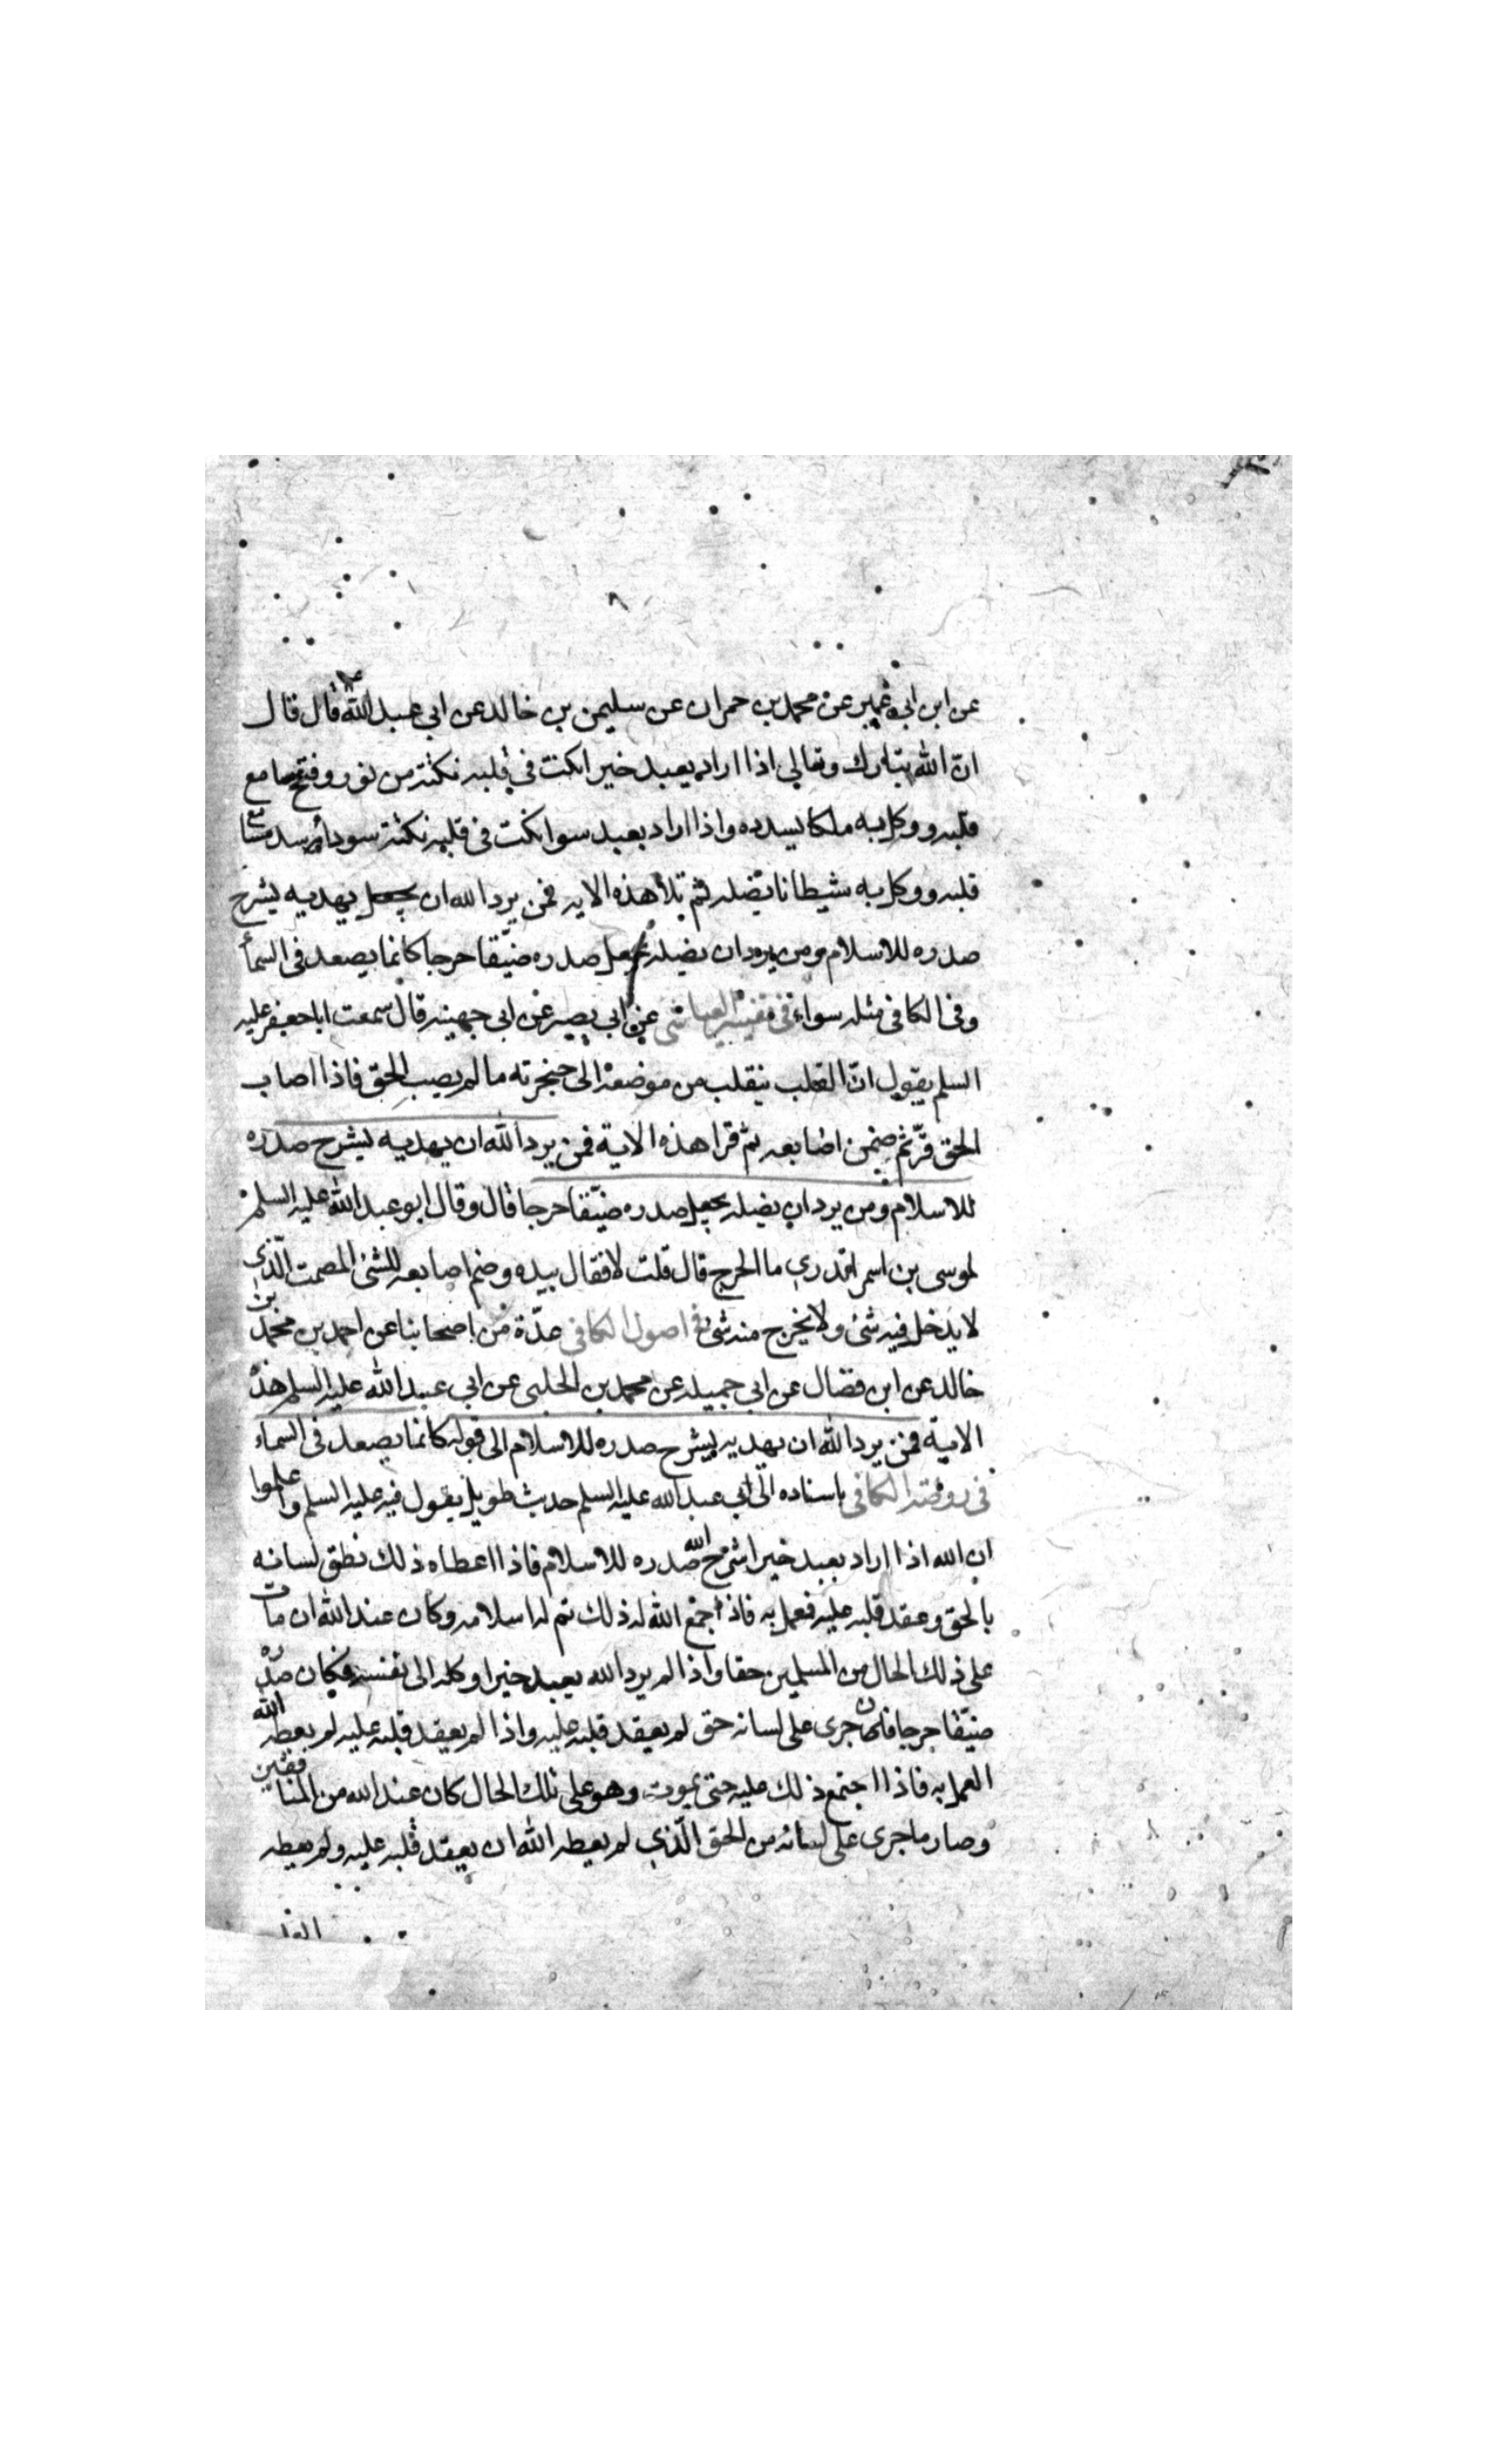 عن ابن ابي عمير عن محمد بن حمران عن سليمن بن خالد عن ابي عبد الله قال قال
ان الله تبارك وتعالى اذا اراد بعبد خيرا نكت في قلبه نكتة من نور وفتح مسامع
قلبه ووكل به ملكا يسدده واذا اراد بعبد سوا نكت في قلبه نكتة سوداء وسد مسامع
قلبه ووكل به شيطانا يضله ثم تلا هذه الايه فمن يرد الله ان يهديه يشرح
صدره للاسلام ومن يرد ان يضله يجعل صدره ضيّقا حرجا كانما يصعد في السماء
وفى الكافى مثله سواء فى تفسير العياشى عن ابي بصير عن ابي جهينه قال سمعت ابا جعفر عليه
السلم يقول انّ القلب ينقلب من موضعه الى حنجرته ما لم يصب الحق فاذا اصاب
الحق قرّ ثم ضمن اصابعه ثم قرا هذه الاية فمن يرد الله ان يهديه يشرح صدره
للاسلام ومن يرد ان يضله يجعل صدره ضيّقا حرجا قال وقال ابو عبد الله عليه السلم
لموسى بن اسمر اتدري ما الحرج قال قلت لا فقال بيده وضم اصابعه للشئ المصمت الّذي
لا يدخل فيه شئ ولا يخرج منه شئ فى اصول الكافى عدّة من اصحابنا عن احمد بن محمد بن
خالد عن ابن فضال عن ابي جميله عن محمد بن الحلبى عن ابي عبد الله عليه السلم هذه
الاية فمن يرد الله ان يهديه يشرح صدره للاسلام الى قوله كانما يصعد فى السماء
فى روضة الكافى باسناده الى ابي عبد الله عليه السلم حديث طويل يقول فيه عليه السلم واعلموا
ان الله اذا اراد بعبد خيرا شرح الله صدره للاسلام فاذا اعطاه ذلك نطق لسانه
بالحق وعقد قلبه عليه فعمل به فاذا جمع الله له ذلك تم له اسلامه وكان عند الله ان مات
على ذلك الحال من المسلمين حقا واذا لم يرد الله بعبد خيرا وكله الى نفسه فكان صدره
ضيّقا حرجا فان جرى على لسانه حق لم يعقد قلبه عليه واذا لم يعقد قلبه عليه لم يعطه الله
العمل به فاذا اجتمع ذلك عليه حتى يموت وهو على تلك الحال كان عند الله من المنافقين
وصار ما جرى على لسانه من الحق الّذي لم يعطه الله ان يعقد قلبه عليه ولم يعطه